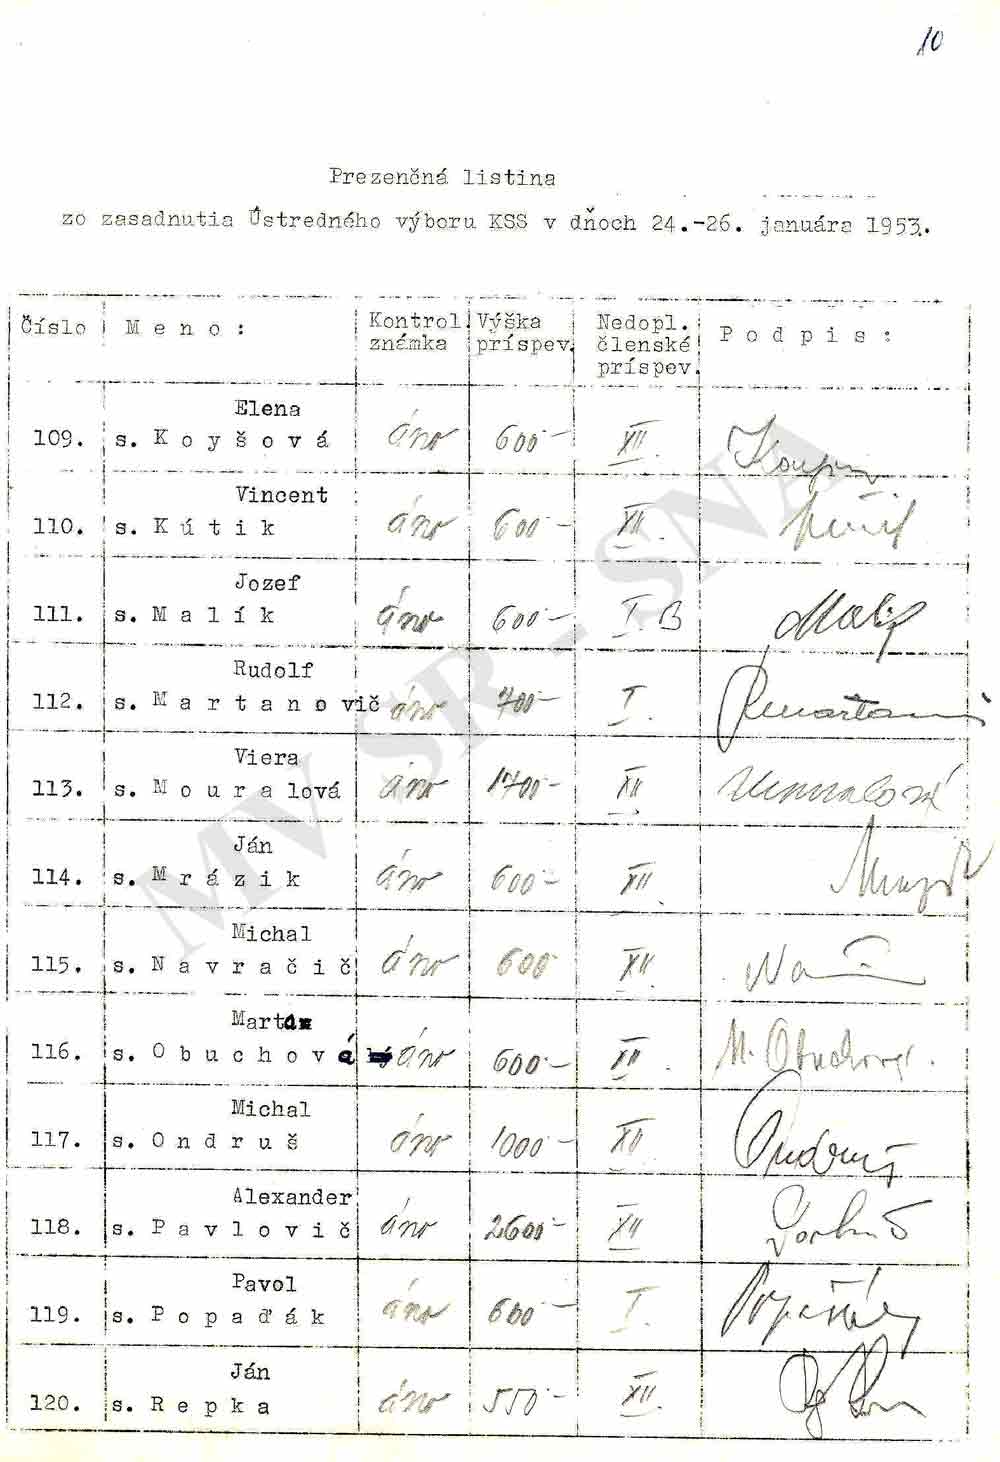 10
Prezenčná listina
zo zasadnutia Ústredného výboru KSS v dňoch 24.-26. januára 1953.
Číslo Meno: Kontrol. známka Výška príspev. Nedopl. členské príspev. Podpis:
Elena
109. s. Koyšová áno 600- XII.
Vincent
110. s. Kútik áno 600- XII.
Jozef
111. s. Malík áno 600- I.B Malík
Rudolf
112. s. Martanovič áno 700- I.
Viera
113. s. Mouralová áno 1700- XII
Ján
114. s. Mrázik áno 600- XII
Michal
115. s. Navračič áno 600 XII
Marta
116. s. Obuchová áno 600- XII. M. Obuchová.
Michal
117. s. Ondruš áno 1000- XII
Alexander
118. s. Pavlovič áno 2600- XII
Pavol
119. s. Popaďák áno 600- I.
Ján
120. s. Repka áno 550- XII
MV SR - SNA